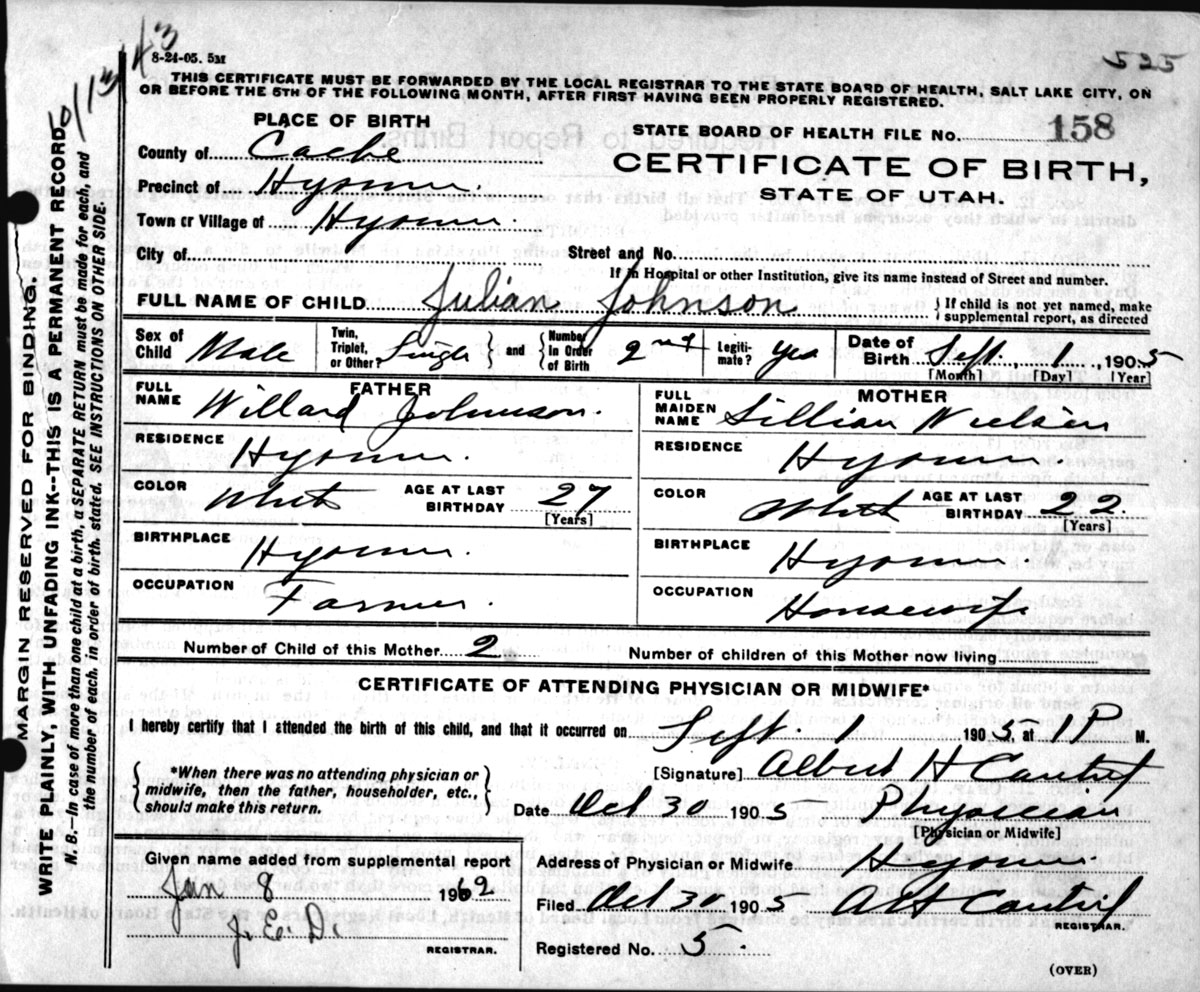 8-24-05. 5M
525
THIS CERTIFICATE MUST BE FORWARDED BY THE LOCAL REGISTRAR TO THE STATE BOARD OF HEALTH, SALT LAKE CITY, ON
OR BEFORE THE 5TH OF THE FOLLOWING MONTH, AFTER FIRST HAVING BEEN PROPERLY REGISTERED.
MARGIN RESERVED FOR BINDING.
WRITE PLAINLY, WITH UNFADING INK--THIS IS A PERMANENT RECORD
N. B.--In case of more than one child at a birth, a SEPARATE RETURN must be made for each, and
the number of each, in order of birth, stated. SEE INSTRUCTIONS ON OTHER SIDE.
PLACE OF BIRTH
STATE BOARD OF HEALTH FILE No. 158
County of Cache
CERTIFICATE OF BIRTH,
Precinct of Hyrum.
STATE OF UTAH.
Town or Village of Hyrum.
City of
Street and No.
If in Hospital or other Institution, give its name instead of Street and number.
FULL NAME OF CHILD Julian Johnson
If child is not yet named, make
supplemental report, as directed
Sex of Child Male
Twin, Triplet, or Other? Single
and Number In Order of Birth 2nd
Legitimate? Yes
Date of Birth Sept. 1, 1905
[Month] [Day] [Year]
FATHER
MOTHER
FULL NAME Willard Johnson.
FULL MAIDEN NAME Lillian Nielsen
RESIDENCE Hyrum.
RESIDENCE Hyrum.
COLOR White AGE AT LAST BIRTHDAY 27 [Years]
COLOR White AGE AT LAST BIRTHDAY 22. [Years]
BIRTHPLACE Hyrum.
BIRTHPLACE Hyrum.
OCCUPATION Farmer.
OCCUPATION Housewife
Number of Child of this Mother 2
Number of children of this Mother now living
CERTIFICATE OF ATTENDING PHYSICIAN OR MIDWIFE*
I hereby certify that I attended the birth of this child, and that it occurred on Sept. 1 1905, at 1 P M.
*When there was no attending physician or
midwife, then the father, householder, etc.,
should make this return.
[Signature] Albert H Cantril
Date Oct 30 1905 Physician
[Physician or Midwife]
Given name added from supplemental report
Jan 8 1962
J. E. D.
REGISTRAR.
Address of Physician or Midwife Hyrum.
Filed Oct 30 1905 A H Cantril
REGISTRAR.
Registered No. 5.
(OVER)